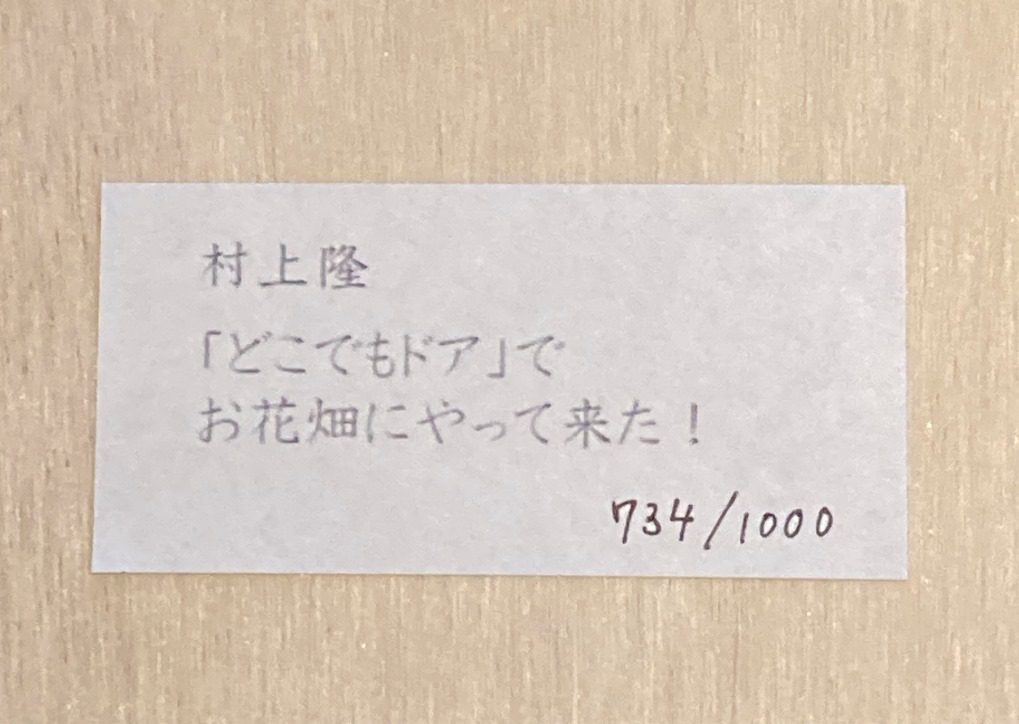 村上隆
「どこでもドア」で
お花畑にやって来た！
734/1000